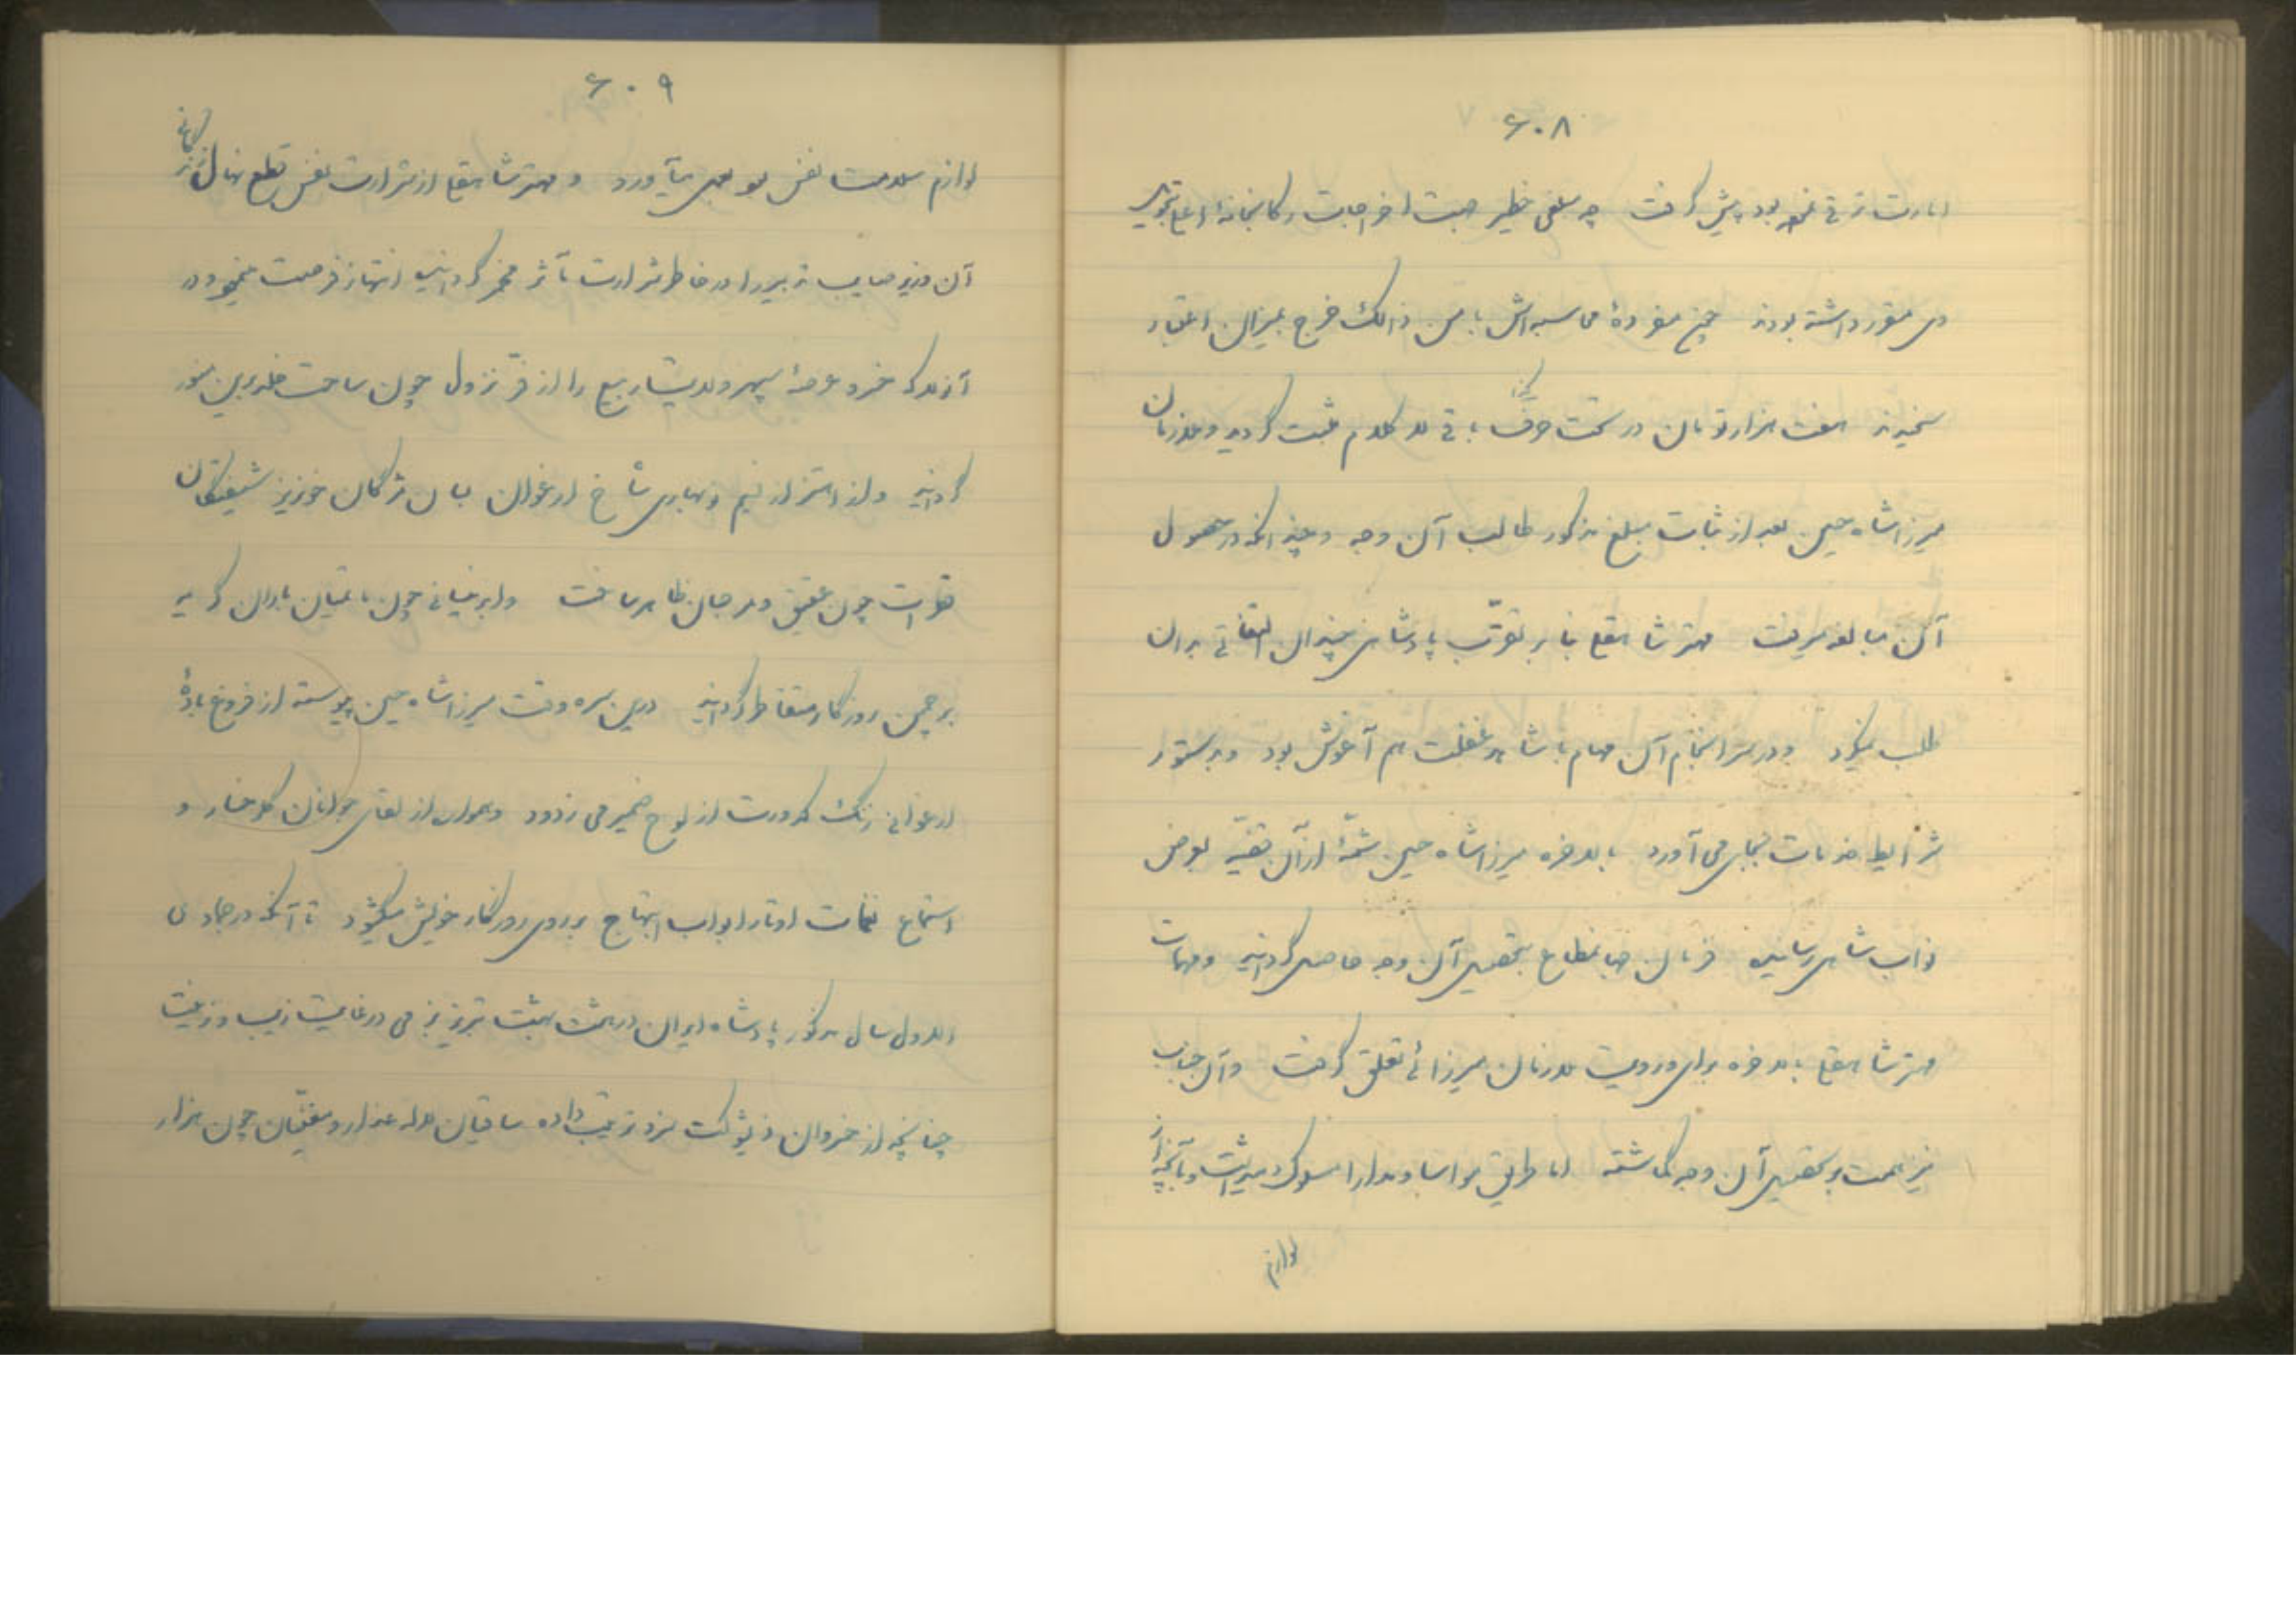 ۶۰۸
امارت ترقی نموده بود پیش گرفت چه مبلغی خطیر جهت اخراجات رکابخانه اعلی بتحویل
وی مقرر داشته بودند جمع مفردهٔ محاسبه‌اش با من ذالک خرج بمیزان اعتبار
سنجیدند هفت هزار تومان در تحت حرف باقی کلام مثبت گردید و ملازمان
میرزا شاه حسین بعد از ثبات مبلغ مذکور طالب آن وجه و چندانکه در حصول
آن مبالغه میرفت مهتر شاهقلی بنا بر تقرّب پادشاهی چندان التفاتی بدان
طلب نمیکرد و در سرانجام آن مهام با شاهد غفلت هم آغوش بود و بدستور
شرایط خدمات بجای می‌آورد بالاخره میرزا شاه حسین شمّهٔ از آن قضیّه بعرض
نواب شاهی رسانیده فرمان جهانمطاع بتحصیل آن وجه حاصل گردانید و مهمات
مهتر شاهقلی بالاخره برای و رویت ملازمان میرزائی تعلق گرفت و آن جناب
نیز همت بر تحصیل آن وجه گماشته اما طریق مواسا و مدارا مسلوک میداشت و آنچه از
لوازم
۶۰۹
لوازم سلامت نفس بود بجای میآورد و مهتر شاهقلی از شرارت نفس قطع نهال زندگانی
آن وزیر صایب تدبیر را در خاطر شرارت مآثر مخمر گردانیده انتهاز فرصت میجود در
آزمند که خسرو عرصهٔ سپهر ولایت ربیع را از فر نزول چون ساحت خلد برین منور
گردانید و از اهتزاز نسیم نوبهاری شاخ ارغوان بسان مژگان خونریز شیفتگان
قطرات چون عقیق و مرجان ظاهر ساخت و ابر نیسانی چون باغبان باران گریه
بر چمن روزگار متقاطر گردانید درین سره وقت میرزا شاه حسین پیوسته از فروغ بادهٔ
ارغوانی زنگ کدورت از لوح ضمیر می زدود و همواره از لقای جوانان گلرخسار و
استماع نغمات اوتار ابواب ابتهاج بر روی روزگار خویش میگشود تا آنکه در جمادی
الاول سال مذکور پادشاه ایران در هشت بهشت تبریز بزمی در غایت زیب و زینت
چنانچه از خسروان ذیشوکت سزد ترتیب داده ساقیان لاله عذار و مغنّیان چون هزار